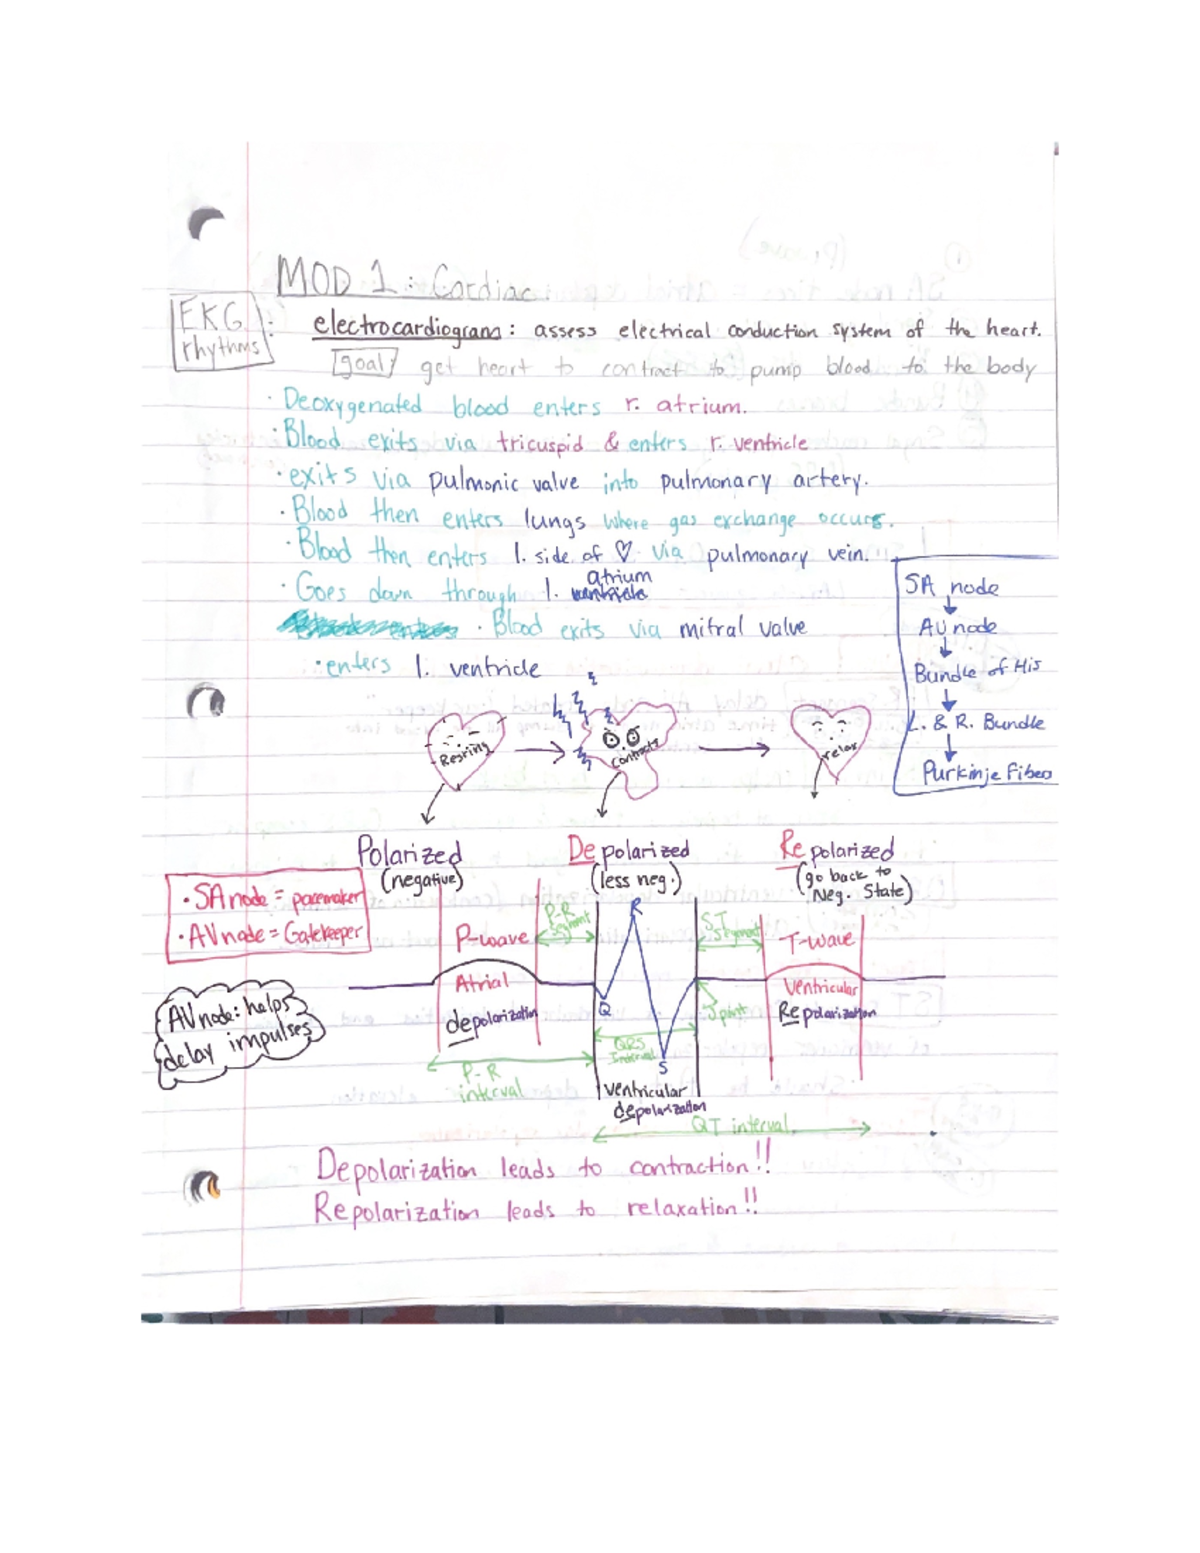 MOD 1: Cardiac
EKG rhythms :
electrocardiogram: assess electrical conduction system of the heart.
goal/ get heart to contract to pump blood to the body
· Deoxygenated blood enters r. atrium.
· Blood exits via tricuspid & enters r. ventricle
· exits via pulmonic valve into pulmonary artery.
· Blood then enters lungs where gas exchange occurs.
· Blood then enters l. side of ♡ via pulmonary vein.
· Goes down through l. atrium
· Blood exits via mitral valve
· enters l. ventricle
SA node
↓
AV node
↓
Bundle of His
↓
L. & R. Bundle
↓
Purkinje Fibers
Resting → contracts → relax
Polarized
(negative)
Depolarized
(less neg.)
Repolarized
(go back to
Neg. State)
· SA node = pacemaker
· AV node = Gatekeeper
AV node: helps
delay impulses
P-wave
Atrial
depolarization
P-R
Segment
P-R
interval
R
Q
S
QRS
Interval
ventricular
depolarization
ST
Segment
J point
T-wave
Ventricular
Repolarization
QT interval
Depolarization leads to contraction!!
Repolarization leads to relaxation!!